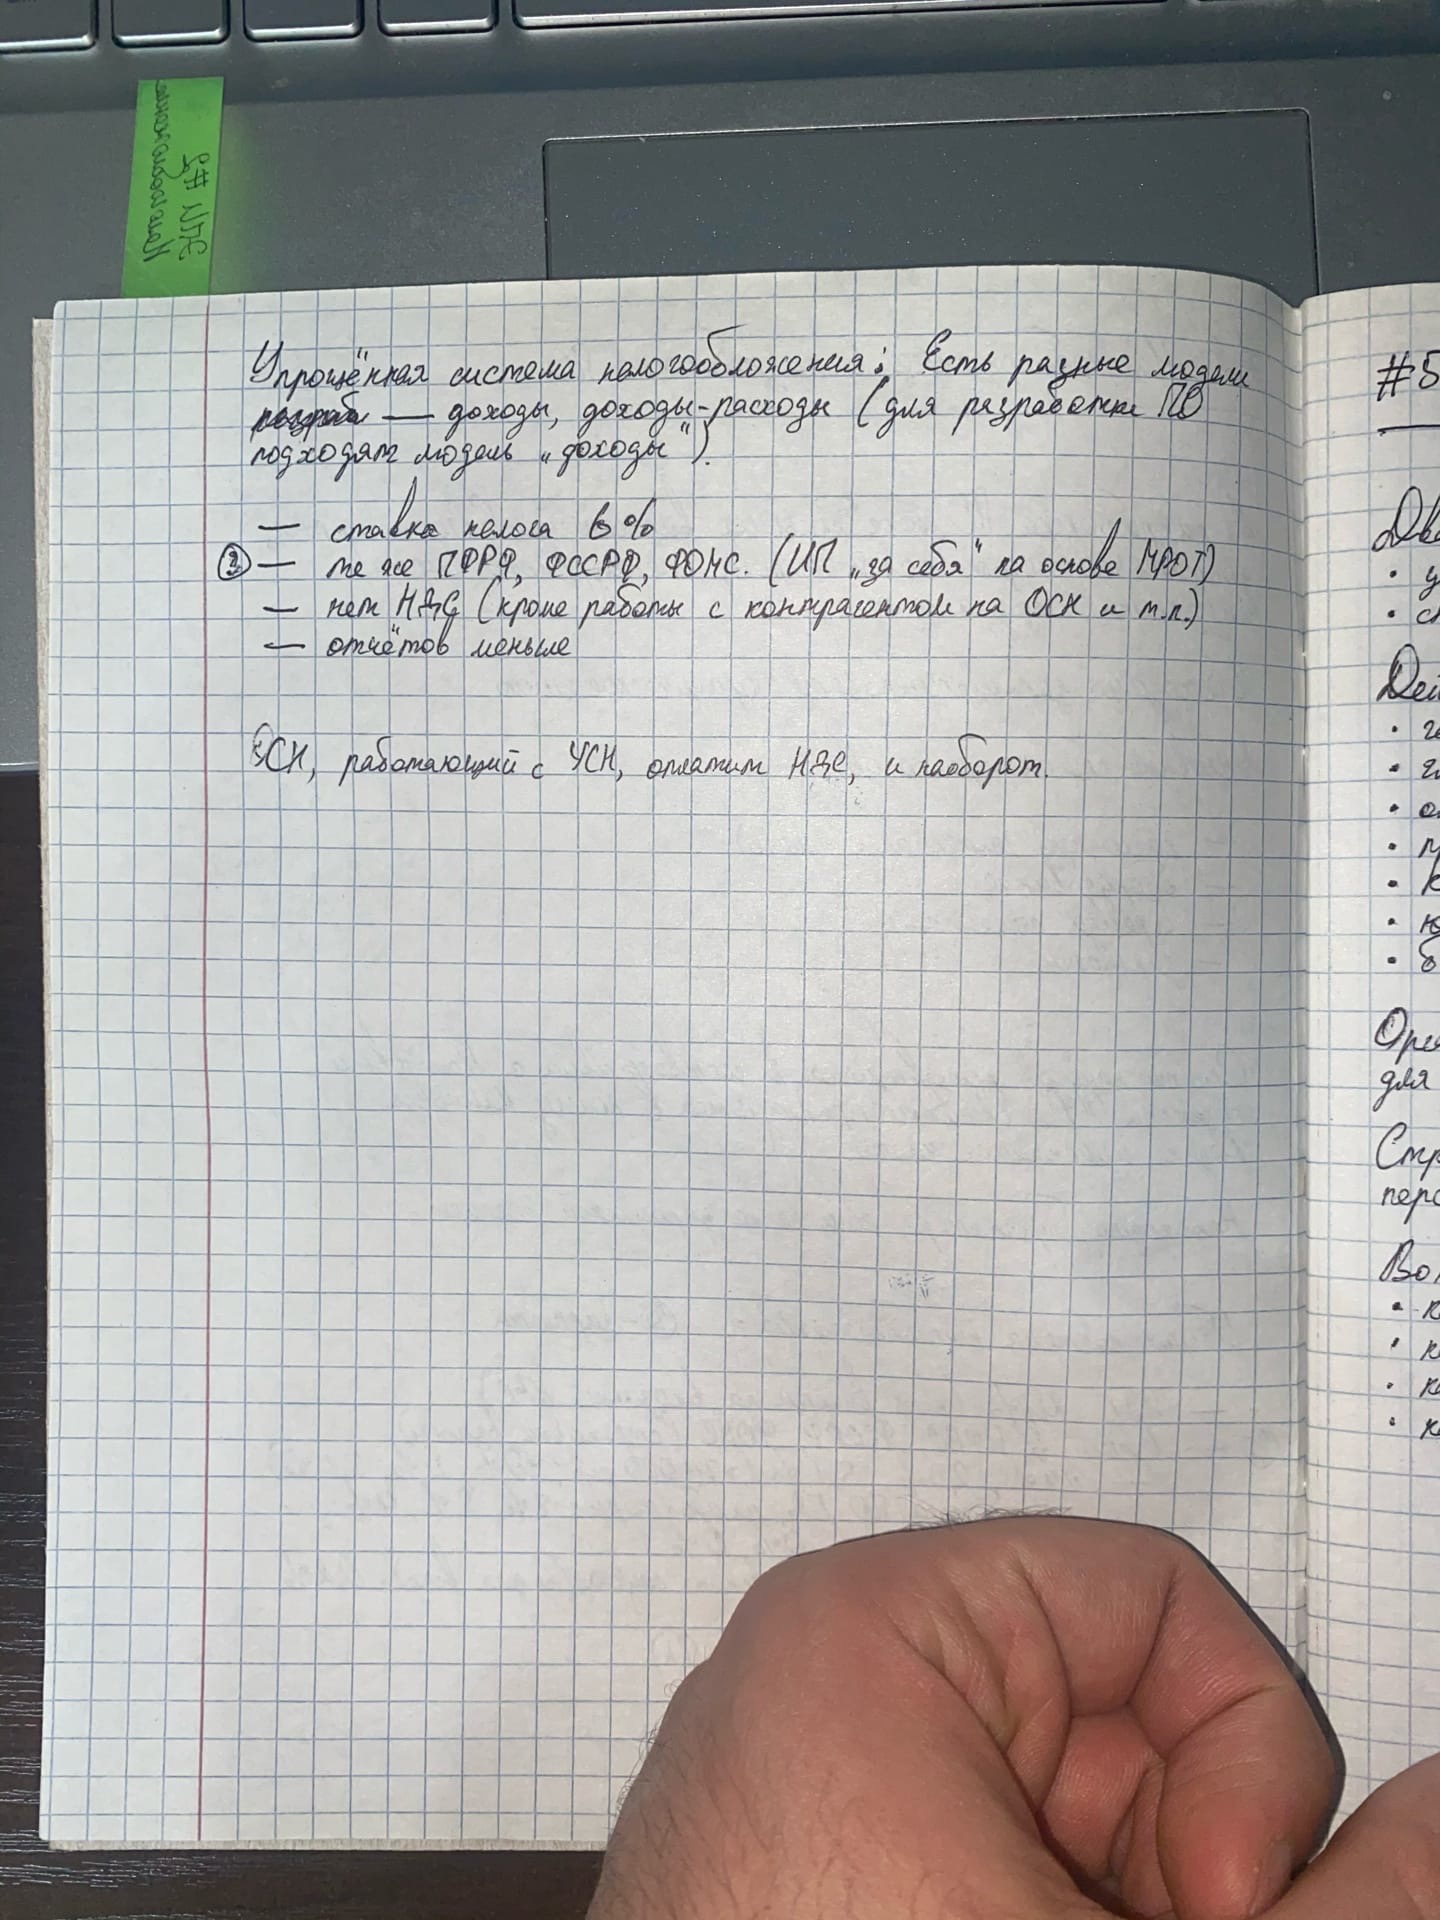 Налогообложение
ЭЧП #2
Упрощённая система налогообложения: Есть разные модели
— доходы, доходы-расходы (для разработки ПО
подходят модель „доходы“).
— ставка налога 6%
③ — те же ПФРФ, ФССРФ, ФОМС. (ИП „за себя“ на основе МРОТ)
— нет НДС (кроме работы с контрагентом на ОСН и т.п.)
— отчётов меньше
ОСН, работающий с УСН, оплатит НДС, и наоборот.
#5
для